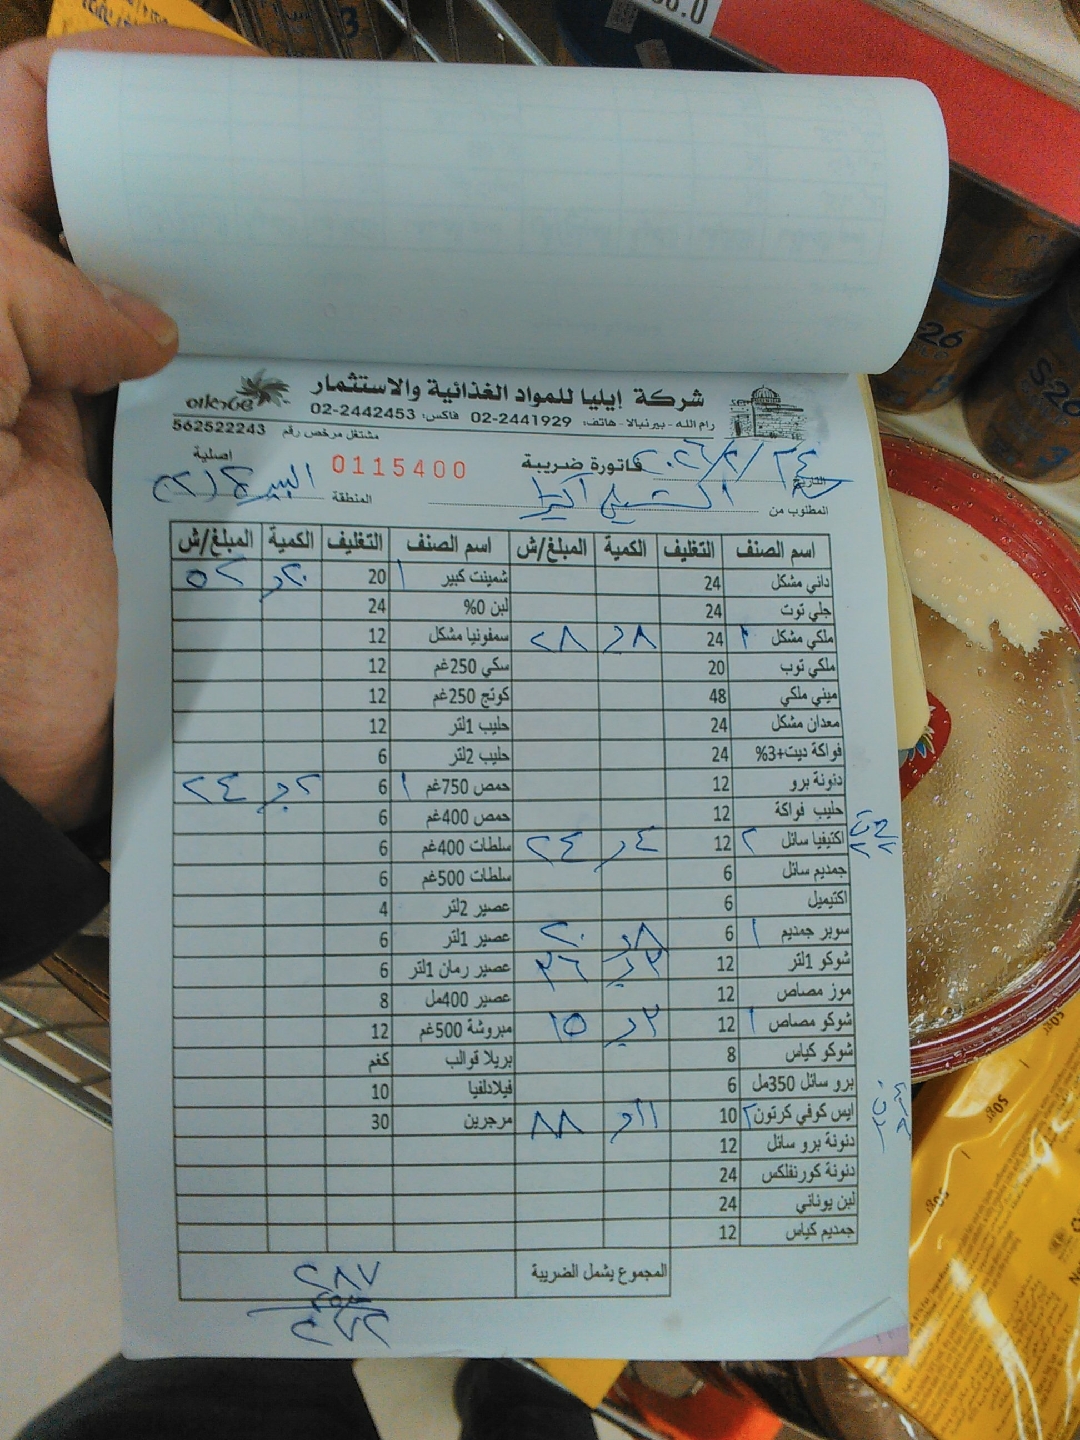 شركة إيليا للمواد الغذائية والاستثمار
رام الله - بيرنبالا - هاتف: 02-2441929 فاكس: 02-2442453
مشتغل مرخص رقم 562522243
فاتورة ضريبة 0115400 اصلية
التاريخ ٢٤/٢/٢٠٢٦
المطلوب من
المنطقة
اسم الصنف التغليف الكمية المبلغ/ش اسم الصنف التغليف الكمية المبلغ/ش
داني مشكل 24 شمينت كبير ١ 20 ٥٢
جلي توت 24 لبن 0% 24
ملكي مشكل 24 ٢٨ سمفونيا مشكل 12
ملكي توب 20 سكي 250غم 12
ميني ملكي 48 كوتج 250غم 12
معدان مشكل 24 حليب 1لتر 12
فواكة ديت+3% 24 حليب 2لتر 6
دنونة برو 12 حمص 750غم ١ 6 ٢٤
حليب فواكة 12 حمص 400غم 6
اكتيفيا سائل ٢ 12 ٢٤ سلطات 400غم 6
جمديم سائل 6 سلطات 500غم 6
اكتيميل 6 عصير 2لتر 4
سوبر جمديم ١ 6 ٢٠ عصير 1لتر 6
شوكو 1لتر 12 ٣٦ عصير رمان 1لتر 6
موز مصاص 12 عصير 400مل 8
شوكو مصاص ١ 12 ١٥ مبروشة 500غم 12
شوكو كياس 8 بريلا قوالب كغم
برو سائل 350مل 6 فيلادلفيا 10
ايس كوفي كرتون ٢ 10 ٨٨ مرجرين 30
دنونة برو سائل 12
دنونة كورنفلكس 24
لبن يوناني 24
جمديم كياس 12
المجموع يشمل الضريبة ٢٨٧
S-26
S-26